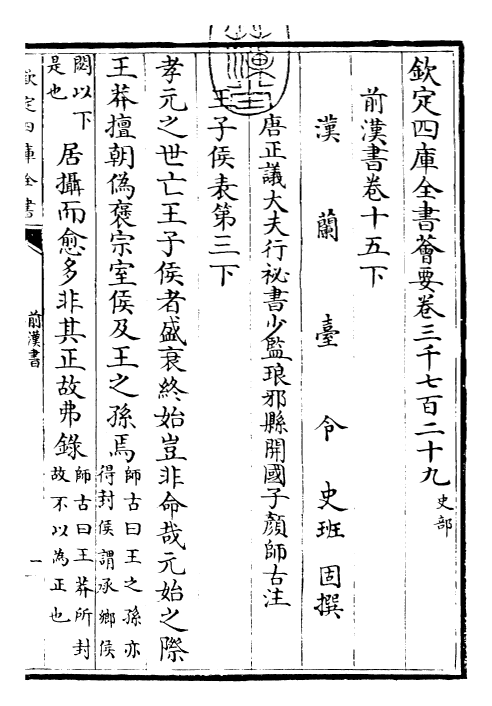 欽定四庫全書薈要卷三千七百二十九 史部
前漢書卷十五下
漢蘭臺令史班固撰
唐正議大夫行祕書少監琅邪縣開國子顏師古注
王子侯表第三下
孝元之世亡王子侯者盛衰終始豈非命哉元始之際
王莽擅朝偽褒宗室侯及王之孫焉師古曰王之孫亦得封侯謂承鄉侯
閎以下是也居攝而愈多非其正故弗錄師古曰王莽所封故不以為正也
欽定四庫全書
前漢書
一